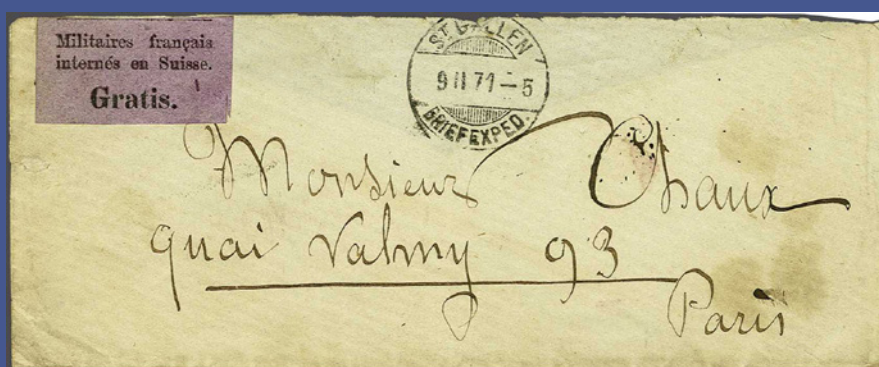 Militaires français
internés en Suisse.
Gratis.
ST. GALLEN
9 II 71 – 5
BRIEFEXPED.
Monsieur Chaux
quai Valmy 93
Paris